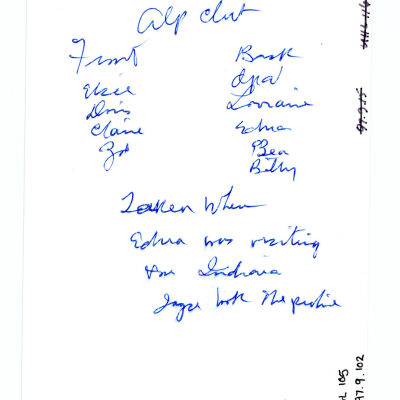 Alp Club
Front Back
Elsie Opal
Doris Lorraine
Claire Edna
Bea
Billy
Taken When
Edna was visiting
Indiana
took the picture
97.9.102